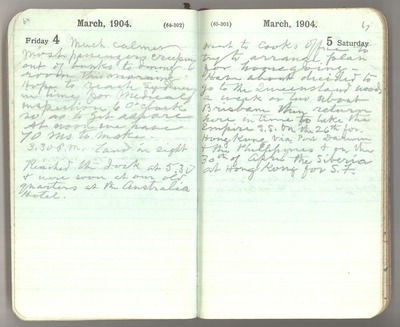 March, 1904.
(64-302)
Friday 4
Much calmer
most passengers creeping
out of bunks to dining
room this morning
hope to reach Sydney
in time for medical
inspection 6 o'clock
so as to get ashore
at noon we have
70 miles to make
3.30 P.M. Land in sight
Reached the dock at 5.30
& were soon at our old
quarters at the Australia
Hotel.
(65-301)
March, 1904.
5 Saturday
went to Cooks Office to
try to arrange plan
for
Have about decided to
go to the Queensland
a week or so about
Brisbane then return
here in time to take the
Empire S.S. on the 26th for
Hong Kong via Port Darwin
& the Philippines & on the
30th of April the Siberia
at Hong Kong for S.F.